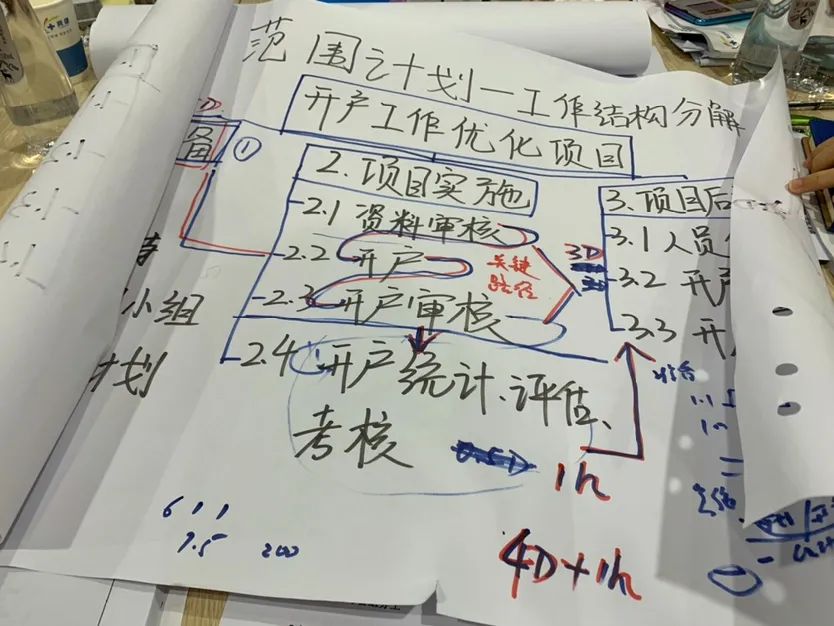 范围之计划一工作结构分解
开户工作优化项目
备 ①
2.项目实施
2.1 资料审核
2.2 开户
2.3 开户审核
2.4 开户统计、评估、
考核
关键
路径
3D
3.项目后
3.1 人员
3.2 开户
3.3 开
小组
计划
1h
4D+1h
6 1 1
7.5 200
1.1